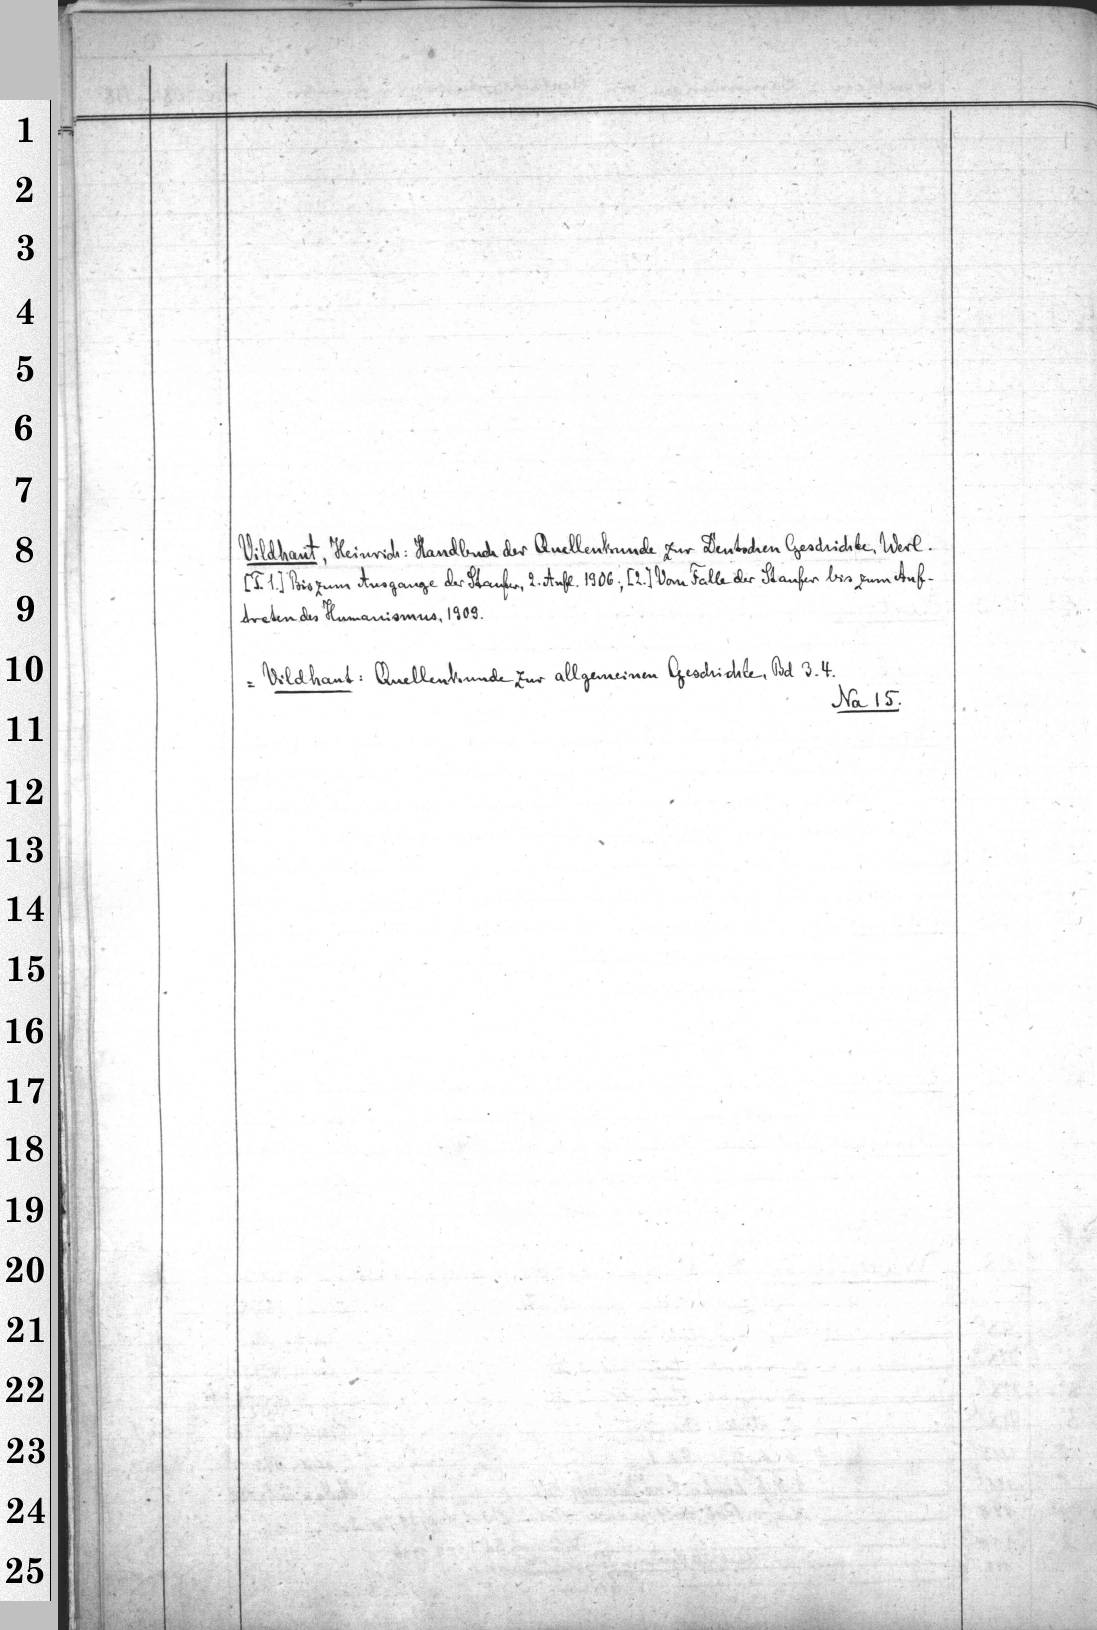 1
2
3
4
5
6
7
8
9
10
11
12
13
14
15
16
17
18
19
20
21
22
23
24
25
Vildhaut, Heinrich: Handbuch der Quellenkunde zur Deutschen Geschichte, Werl.
[I. 1.] Bis zum Ausgange der Staufer, 2. Aufl. 1906; [2.] Vom Falle der Staufer bis zum Auf-
treten des Humanismus, 1909.
= Vildhaut: Quellenkunde zur allgemeinen Geschichte, Bd 3. 4.
Na 15.